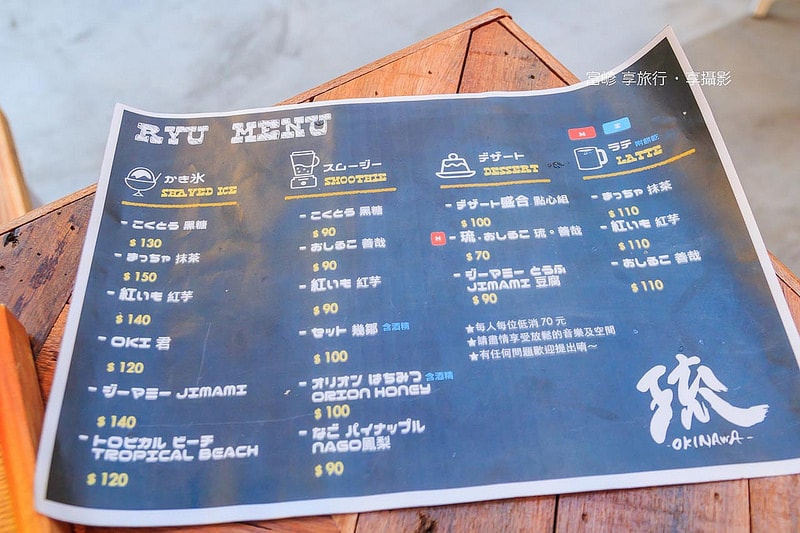 富嵃 享旅行・享攝影
RYU MENU
かき氷
SHAVED ICE
- こくとう 黑糖
$130
- まっちゃ 抹茶
$150
- 紅いも 紅芋
$140
- OKI 君
$120
- ジーマミー JIMAMI
$140
- トロピカル ビーチ
TROPICAL BEACH
$120
スムージー
SMOOTHIE
- こくとう 黑糖
$90
- おしるこ 善哉
$90
- 紅いも 紅芋
$90
- セット 幾鄒 含酒精
$100
- オリオン はちみつ 含酒精
ORION HONEY
$100
- なご パイナップル
NAGO鳳梨
$90
デザート
DESSERT
- デザート盛合 點心組
$100
H - 琉・おしるこ 琉。善哉
$70
- ジーマミー とうふ
JIMAMI 豆腐
$90
★每人每位低消 70 元
★請盡情享受放鬆的音樂及空間
★有任何問題歡迎提出唷～
H
ラテ 附餅乾
LATTE
- まっちゃ 抹茶
$110
- 紅いも 紅芋
$110
- おしるこ 善哉
$110
琉
-OKINAWA-